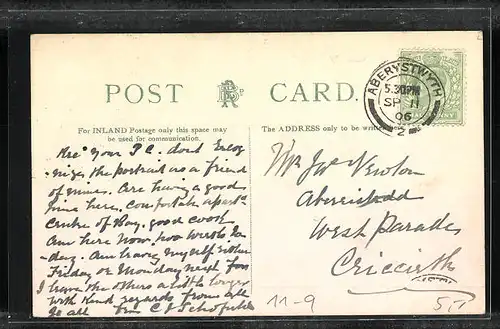 POST CARD.
For INLAND Postage only this space may
be used for communication.
The ADDRESS only to be written
ABERYSTWYTH
5.30PM
SP 11
06
2
Rec^d your P.C. dont recog
nize the portrait as a friend
of mines. Are having a good
time here, comfortable apart^s
centre of Bay, good cook
Am here now two weeks to-
day. Am leaving myself either
Friday or Monday next for
I leave the others a little longer
with kind regards from all
to all C J Schofield
Mr Jn^o Newton
West Parade
Criccieth
11-9